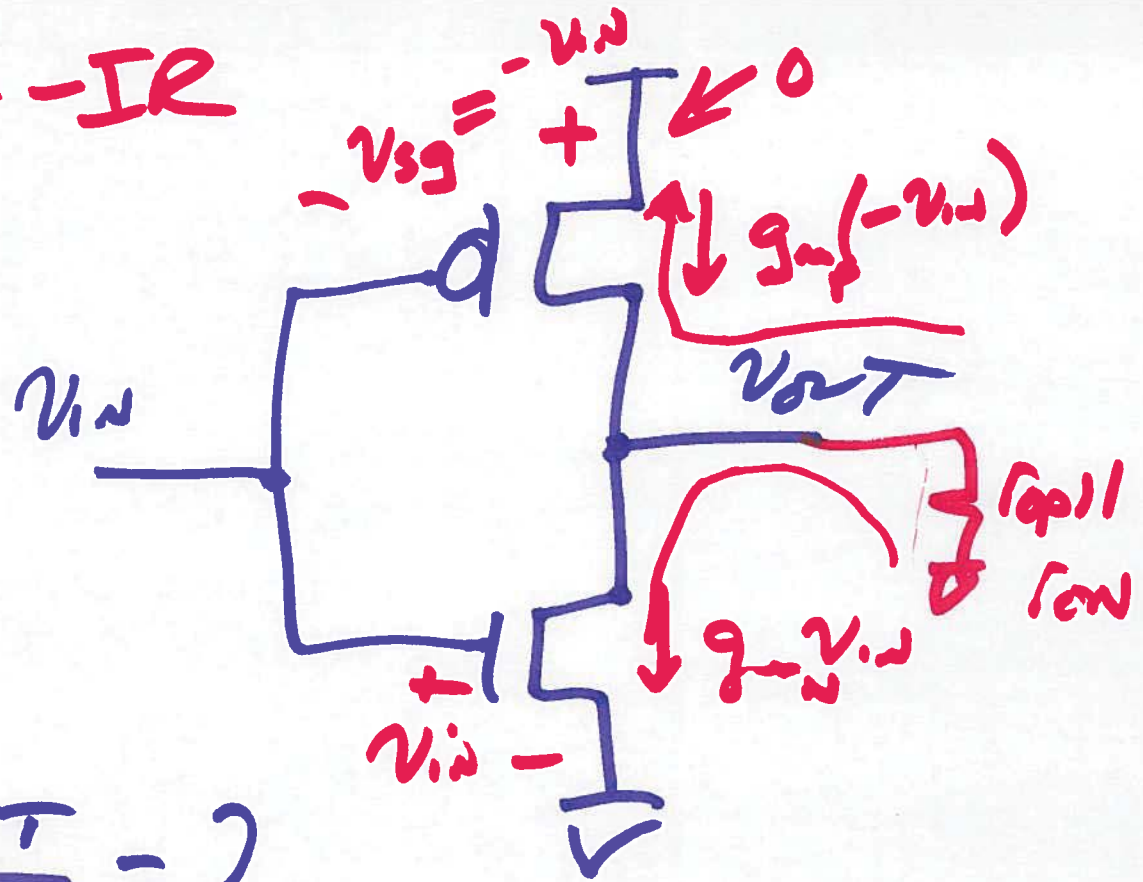 -IR
- v_sg = -v_IN
+
0
g_mp(-v_IN)
v_OUT
v_IN
r_op ||
r_on
g_mN v_IN
+
v_IN -
= ?